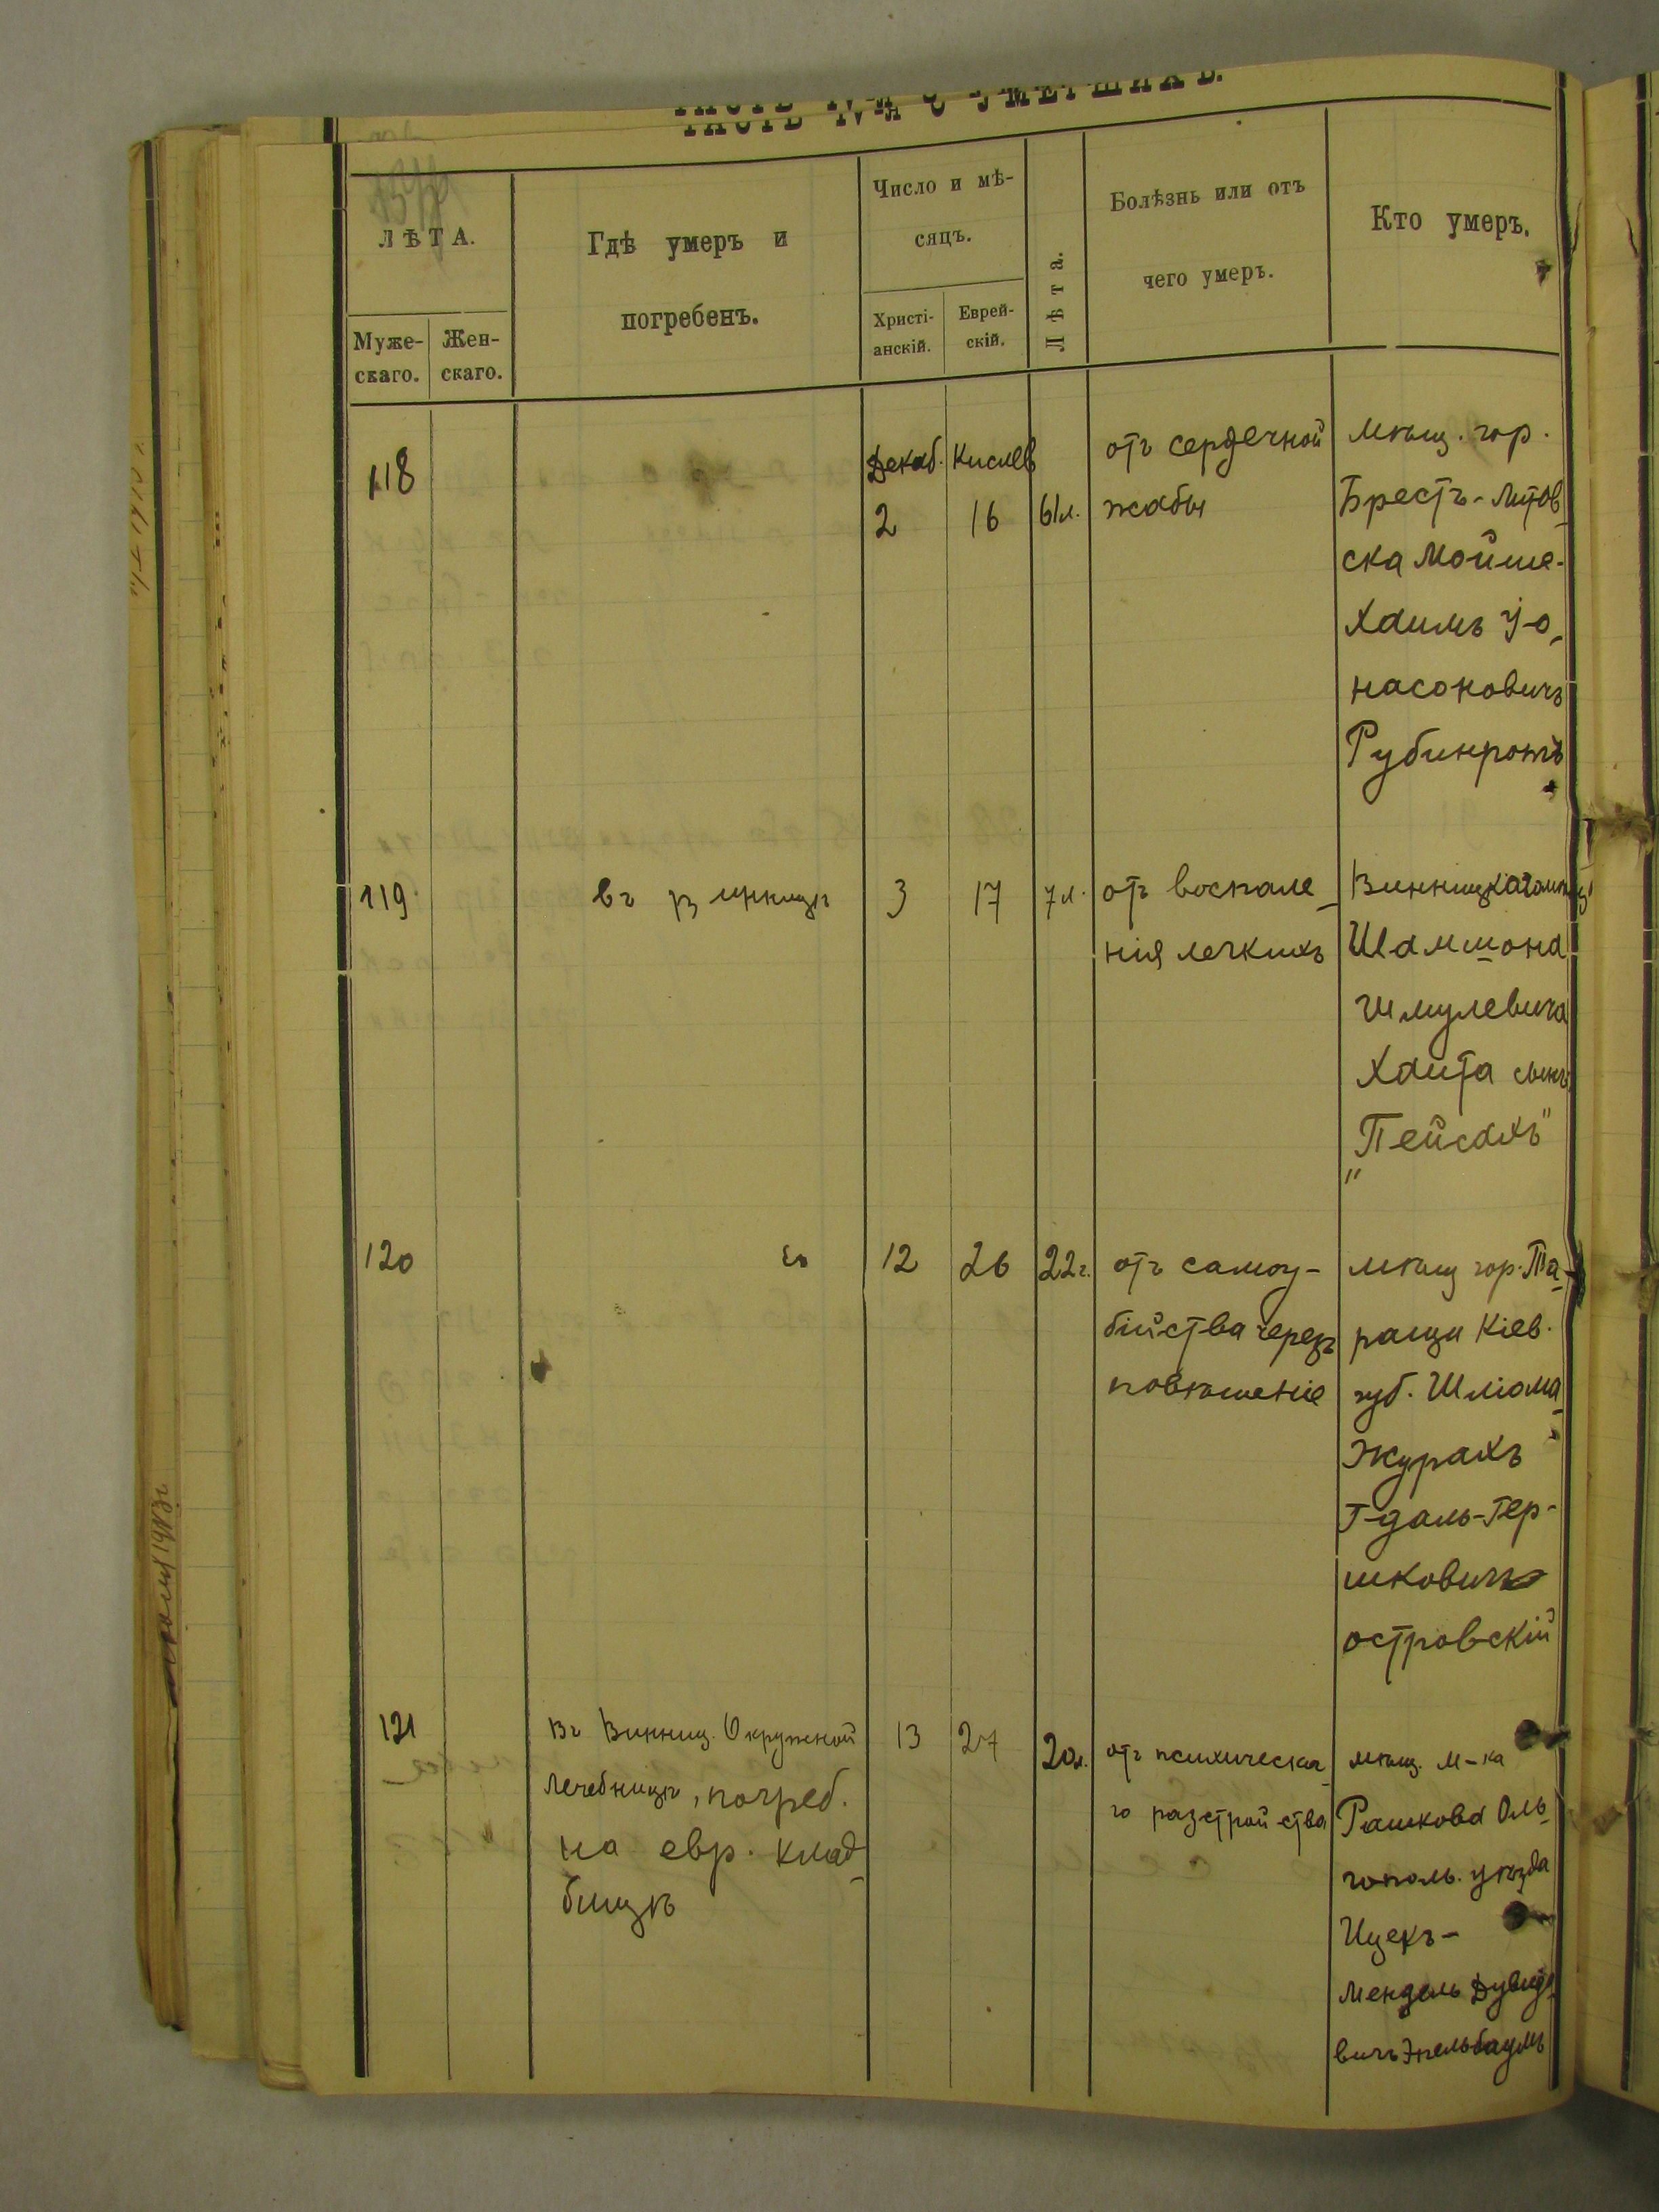 ЧАСТЬ IV-Я О УМЕРШИХЪ.
ЛѢТА.
Муже-
скаго.
Жен-
скаго.
Гдѣ умеръ и
погребенъ.
Число и мѣ-
сяцъ.
Христі-
анскій.
Еврей-
скій.
Лѣта.
Болѣзнь или отъ
чего умеръ.
Кто умеръ.
118
Декаб. Кислев
2 16 61л.
отъ сердечной
жабы
мѣщ. гор.
Брестъ-Литов-
ска Мойше-
Хаимъ Іо-
насоновичъ
Рубинротъ
119
въ Винницѣ
3 17 7л.
отъ воспале-
нія легкихъ
Винницкаго мѣщ
Шамшона
Шмулевича
Хаита сынъ
"Пейсахъ"
120
12 26 22г.
отъ самоу-
бійства черезъ
повѣшеніе
мѣщ гор. Та-
ращи Кіев.
губ. Шліома-
Журахъ
Гдаль-Гер-
шковичъ
островскій
121
Въ Винниц. Окружной
лечебницѣ, погреб.
на евр. клад-
бищѣ
13 27 20л.
отъ психическа-
го разстройства
мѣщ. м-ка
Рашкова Оль-
гополь. уѣзда
Ицекъ-
Мендель Дувидо-
вичъ Эпельбаумъ